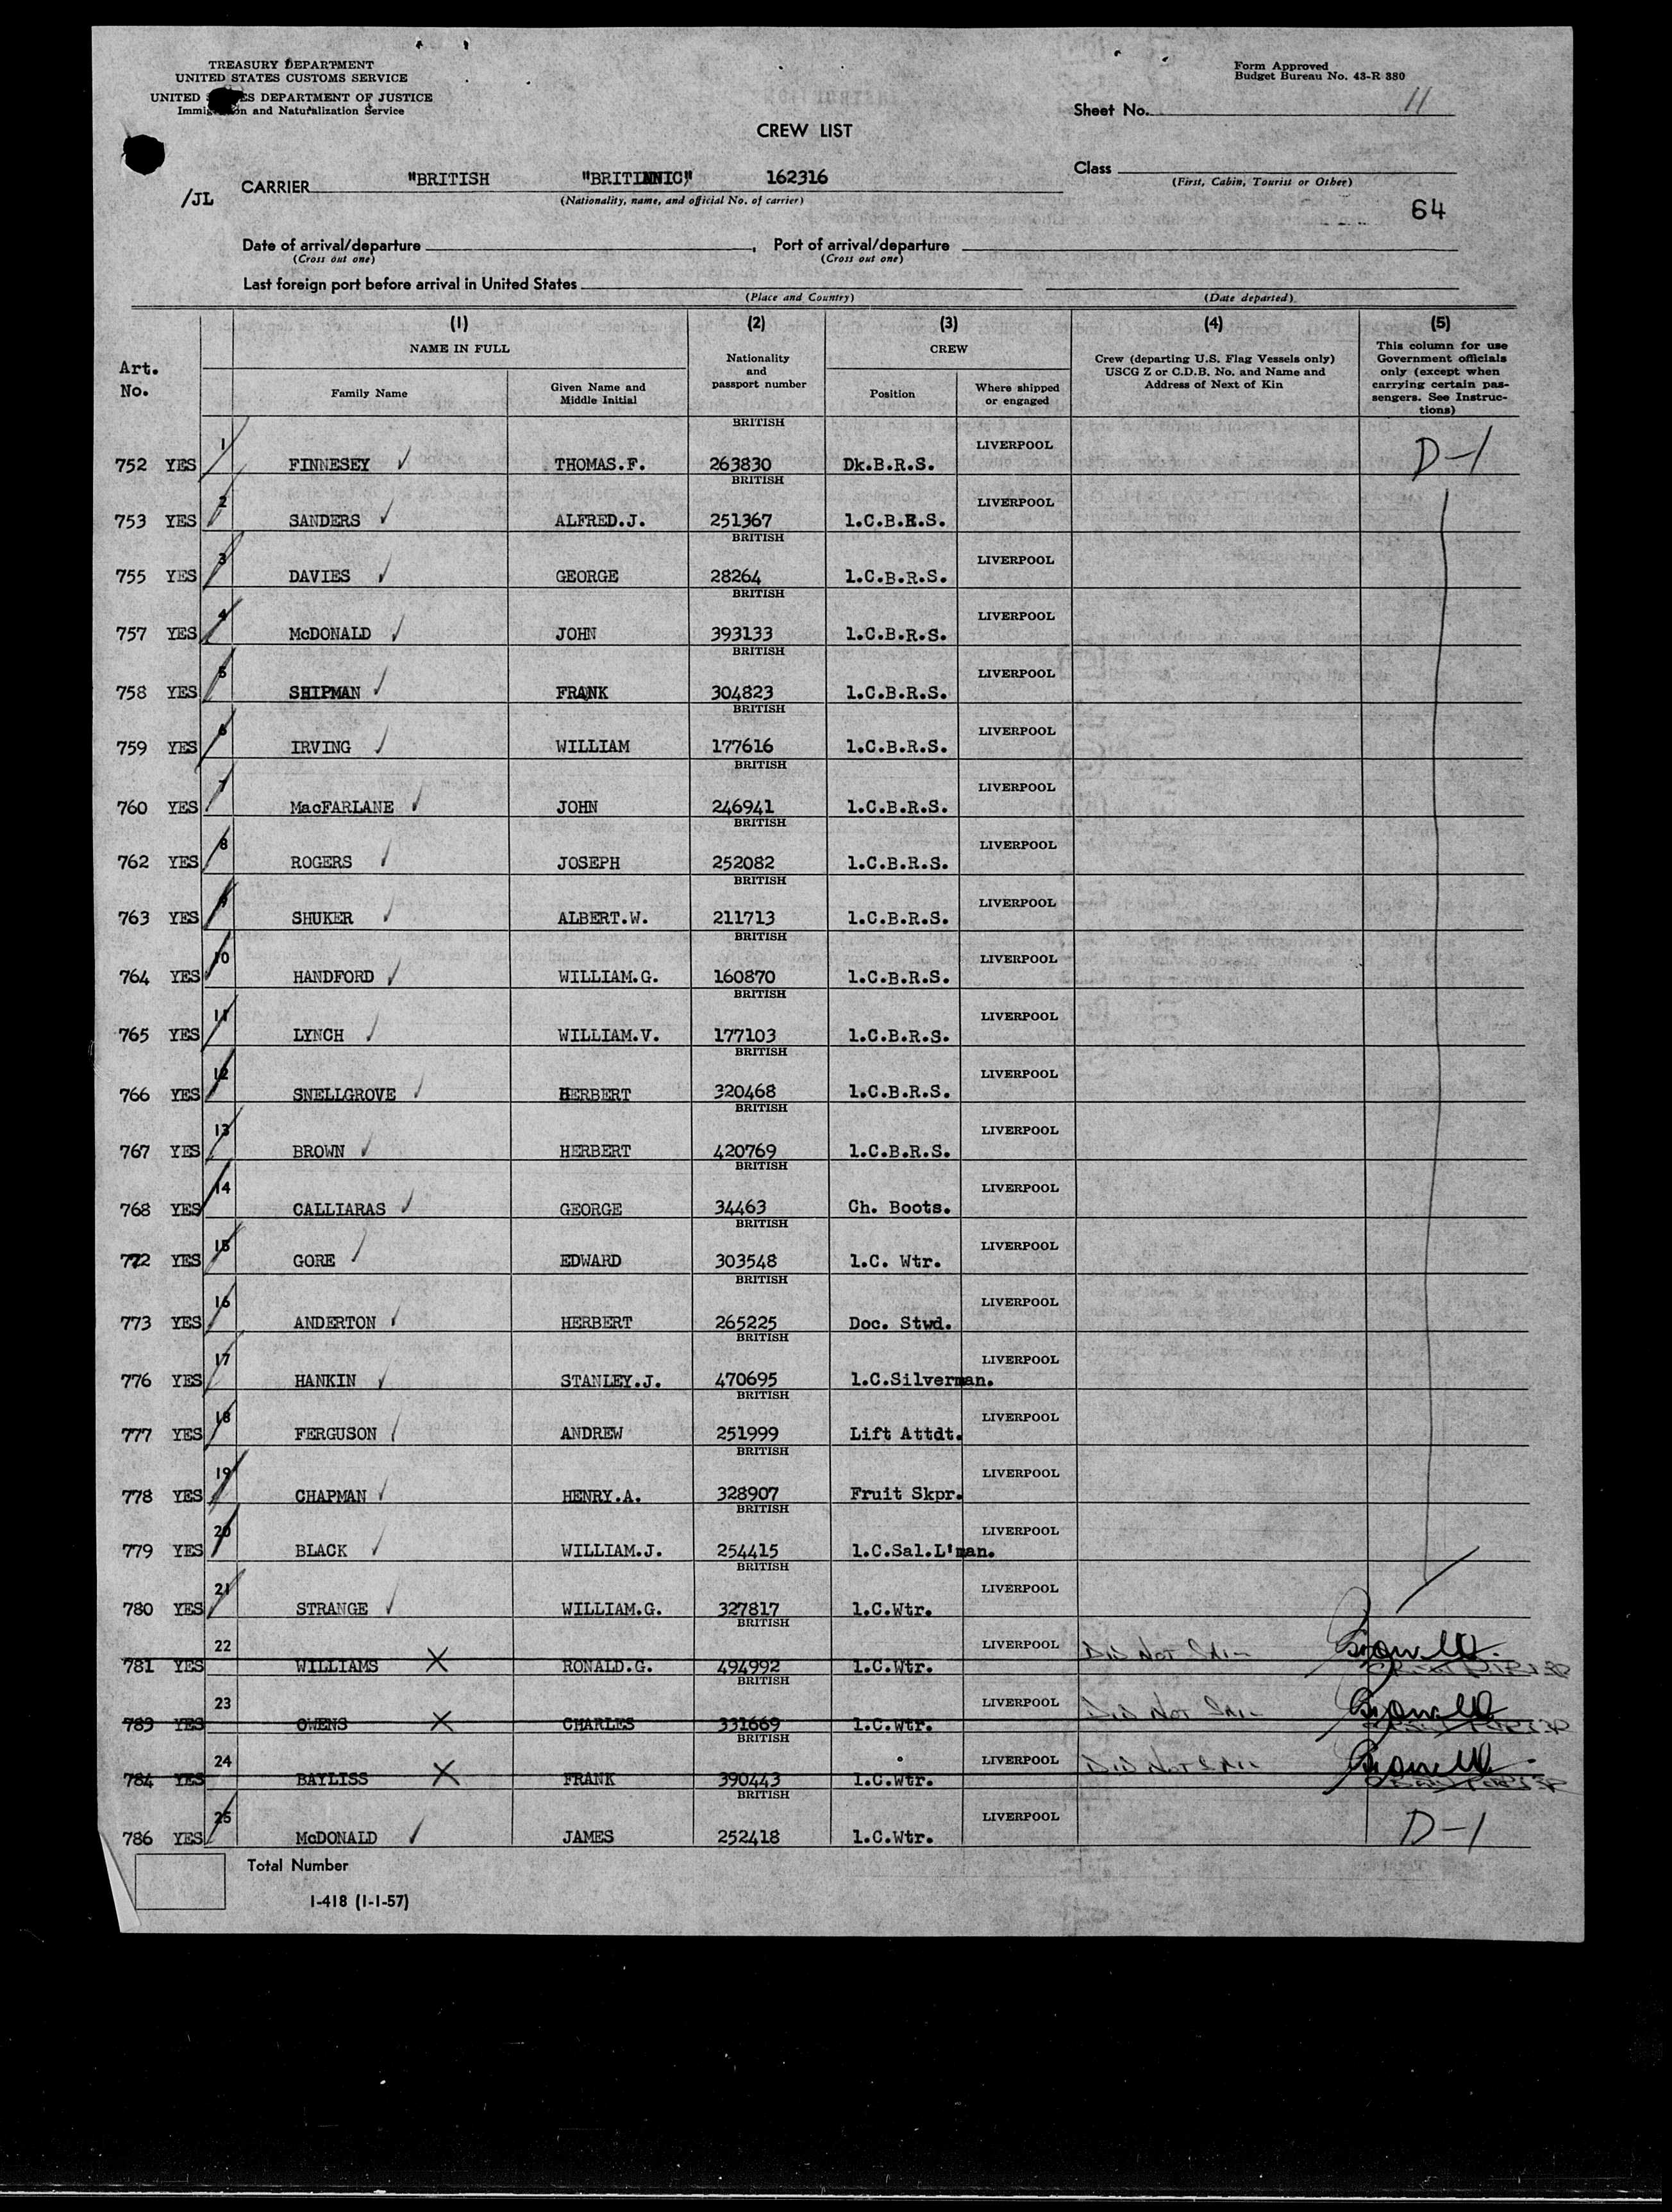 TREASURY DEPARTMENT
UNITED STATES CUSTOMS SERVICE
UNITED STATES DEPARTMENT OF JUSTICE
Immigration and Naturalization Service
Form Approved
Budget Bureau No. 43-R 380
Sheet No. 11
CREW LIST
/JL CARRIER "BRITISH "BRITINNIC" 162316
(Nationality, name, and official No. of carrier)
Class
(First, Cabin, Tourist or Other)
64
Date of arrival/departure , Port of arrival/departure
(Cross out one) (Cross out one)
Last foreign port before arrival in United States
(Place and Country) (Date departed)
Art. No. (1) NAME IN FULL Family Name Given Name and Middle Initial (2) Nationality and passport number (3) CREW Position Where shipped or engaged (4) Crew (departing U.S. Flag Vessels only) USCG Z or C.D.B. No. and Name and Address of Next of Kin (5) This column for use Government officials only (except when carrying certain passengers. See Instructions)
752 YES 1 FINNESEY THOMAS.F. BRITISH 263830 Dk.B.R.S. LIVERPOOL D-1
753 YES 2 SANDERS ALFRED.J. BRITISH 251367 1.C.B.R.S. LIVERPOOL
755 YES 3 DAVIES GEORGE BRITISH 28264 1.C.B.R.S. LIVERPOOL
757 YES 4 McDONALD JOHN BRITISH 393133 1.C.B.R.S. LIVERPOOL
758 YES 5 SHIPMAN FRANK BRITISH 304823 1.C.B.R.S. LIVERPOOL
759 YES 6 IRVING WILLIAM BRITISH 177616 1.C.B.R.S. LIVERPOOL
760 YES 7 MacFARLANE JOHN BRITISH 246941 1.C.B.R.S. LIVERPOOL
762 YES 8 ROGERS JOSEPH BRITISH 252082 1.C.B.R.S. LIVERPOOL
763 YES 9 SHUKER ALBERT.W. BRITISH 211713 1.C.B.R.S. LIVERPOOL
764 YES 10 HANDFORD WILLIAM.G. BRITISH 160870 1.C.B.R.S. LIVERPOOL
765 YES 11 LYNCH WILLIAM.V. BRITISH 177103 1.C.B.R.S. LIVERPOOL
766 YES 12 SNELLGROVE HERBERT BRITISH 320468 1.C.B.R.S. LIVERPOOL
767 YES 13 BROWN HERBERT BRITISH 420769 1.C.B.R.S. LIVERPOOL
768 YES 14 CALLIARAS GEORGE BRITISH 34463 Ch. Boots. LIVERPOOL
772 YES 15 GORE EDWARD BRITISH 303548 1.C. Wtr. LIVERPOOL
773 YES 16 ANDERTON HERBERT BRITISH 265225 Doc. Stwd. LIVERPOOL
776 YES 17 HANKIN STANLEY.J. BRITISH 470695 1.C.Silverman. LIVERPOOL
777 YES 18 FERGUSON ANDREW BRITISH 251999 Lift Attdt. LIVERPOOL
778 YES 19 CHAPMAN HENRY.A. BRITISH 328907 Fruit Skpr. LIVERPOOL
779 YES 20 BLACK WILLIAM.J. BRITISH 254415 1.C.Sal.L'man. LIVERPOOL
780 YES 21 STRANGE WILLIAM.G. BRITISH 327817 1.C.Wtr. LIVERPOOL
781 YES 22 WILLIAMS RONALD.G. BRITISH 494992 1.C.Wtr. LIVERPOOL DID NOT
783 YES 23 OWENS CHARLES BRITISH 331669 1.C.Wtr. LIVERPOOL DID NOT
784 YES 24 BAYLISS FRANK BRITISH 390443 1.C.Wtr. LIVERPOOL DID NOT
786 YES 25 McDONALD JAMES BRITISH 252418 1.C.Wtr. LIVERPOOL D-1
Total Number
I-418 (1-1-57)